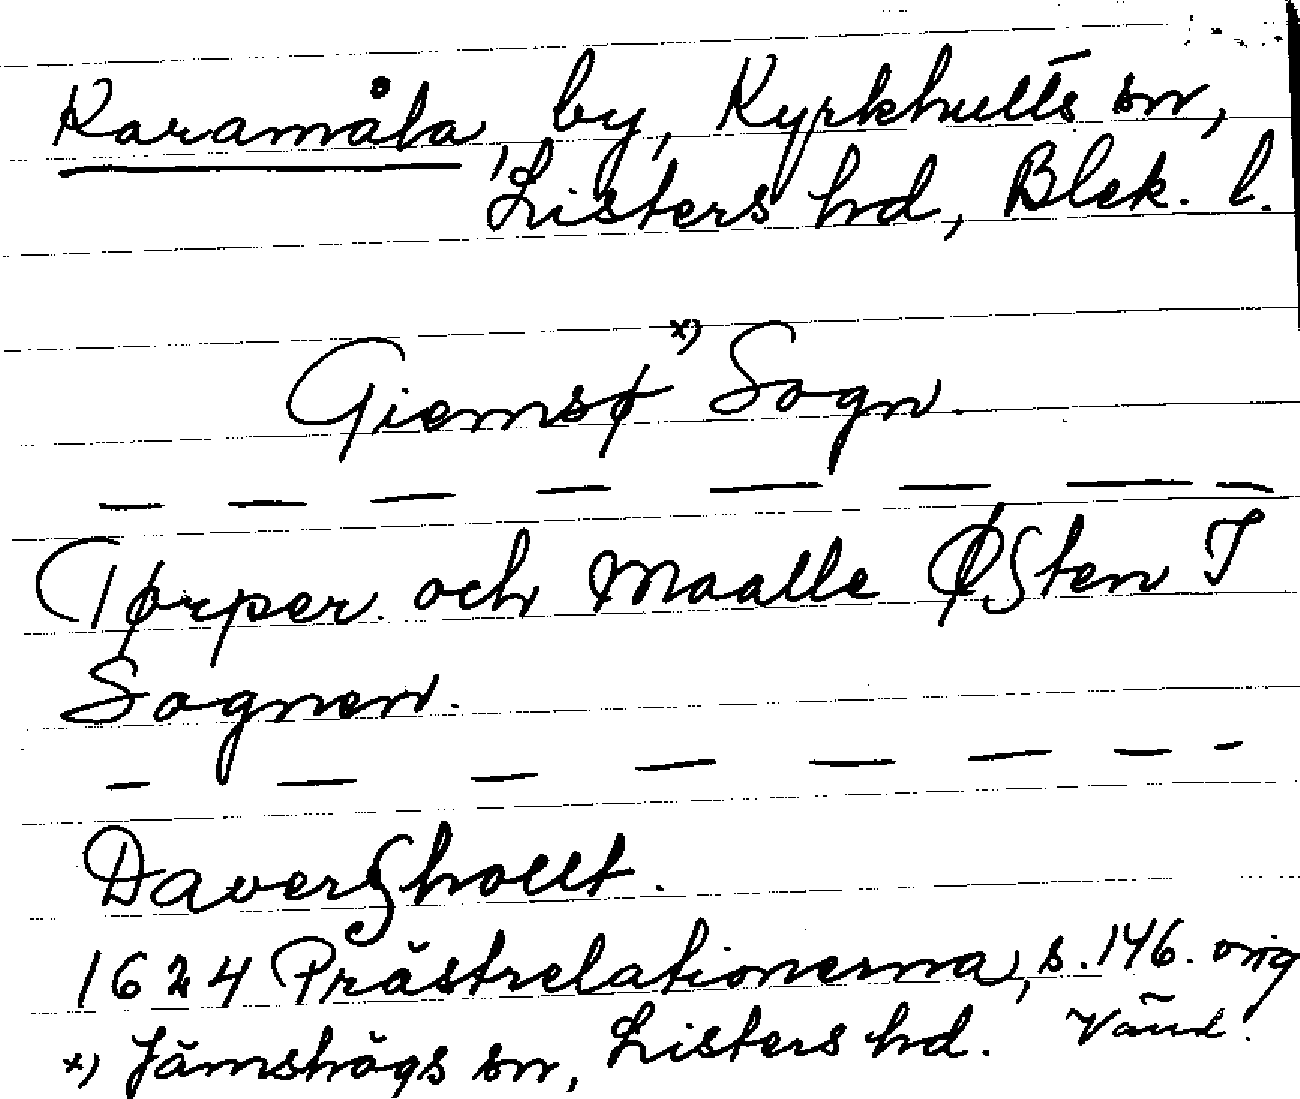 Karamåla, by, Kyrkhults sn,
Listers hd, Blek. l.
Giemsø x) Sogn.
— — — — — — — —
Tørper och Maalle ØSten I
Sognen.
— — — — — — — —
DaverShollt.
1624 Prästrelationerna, s. 146. orig
x) Jämshögs sn, Listers hd. Vänd.